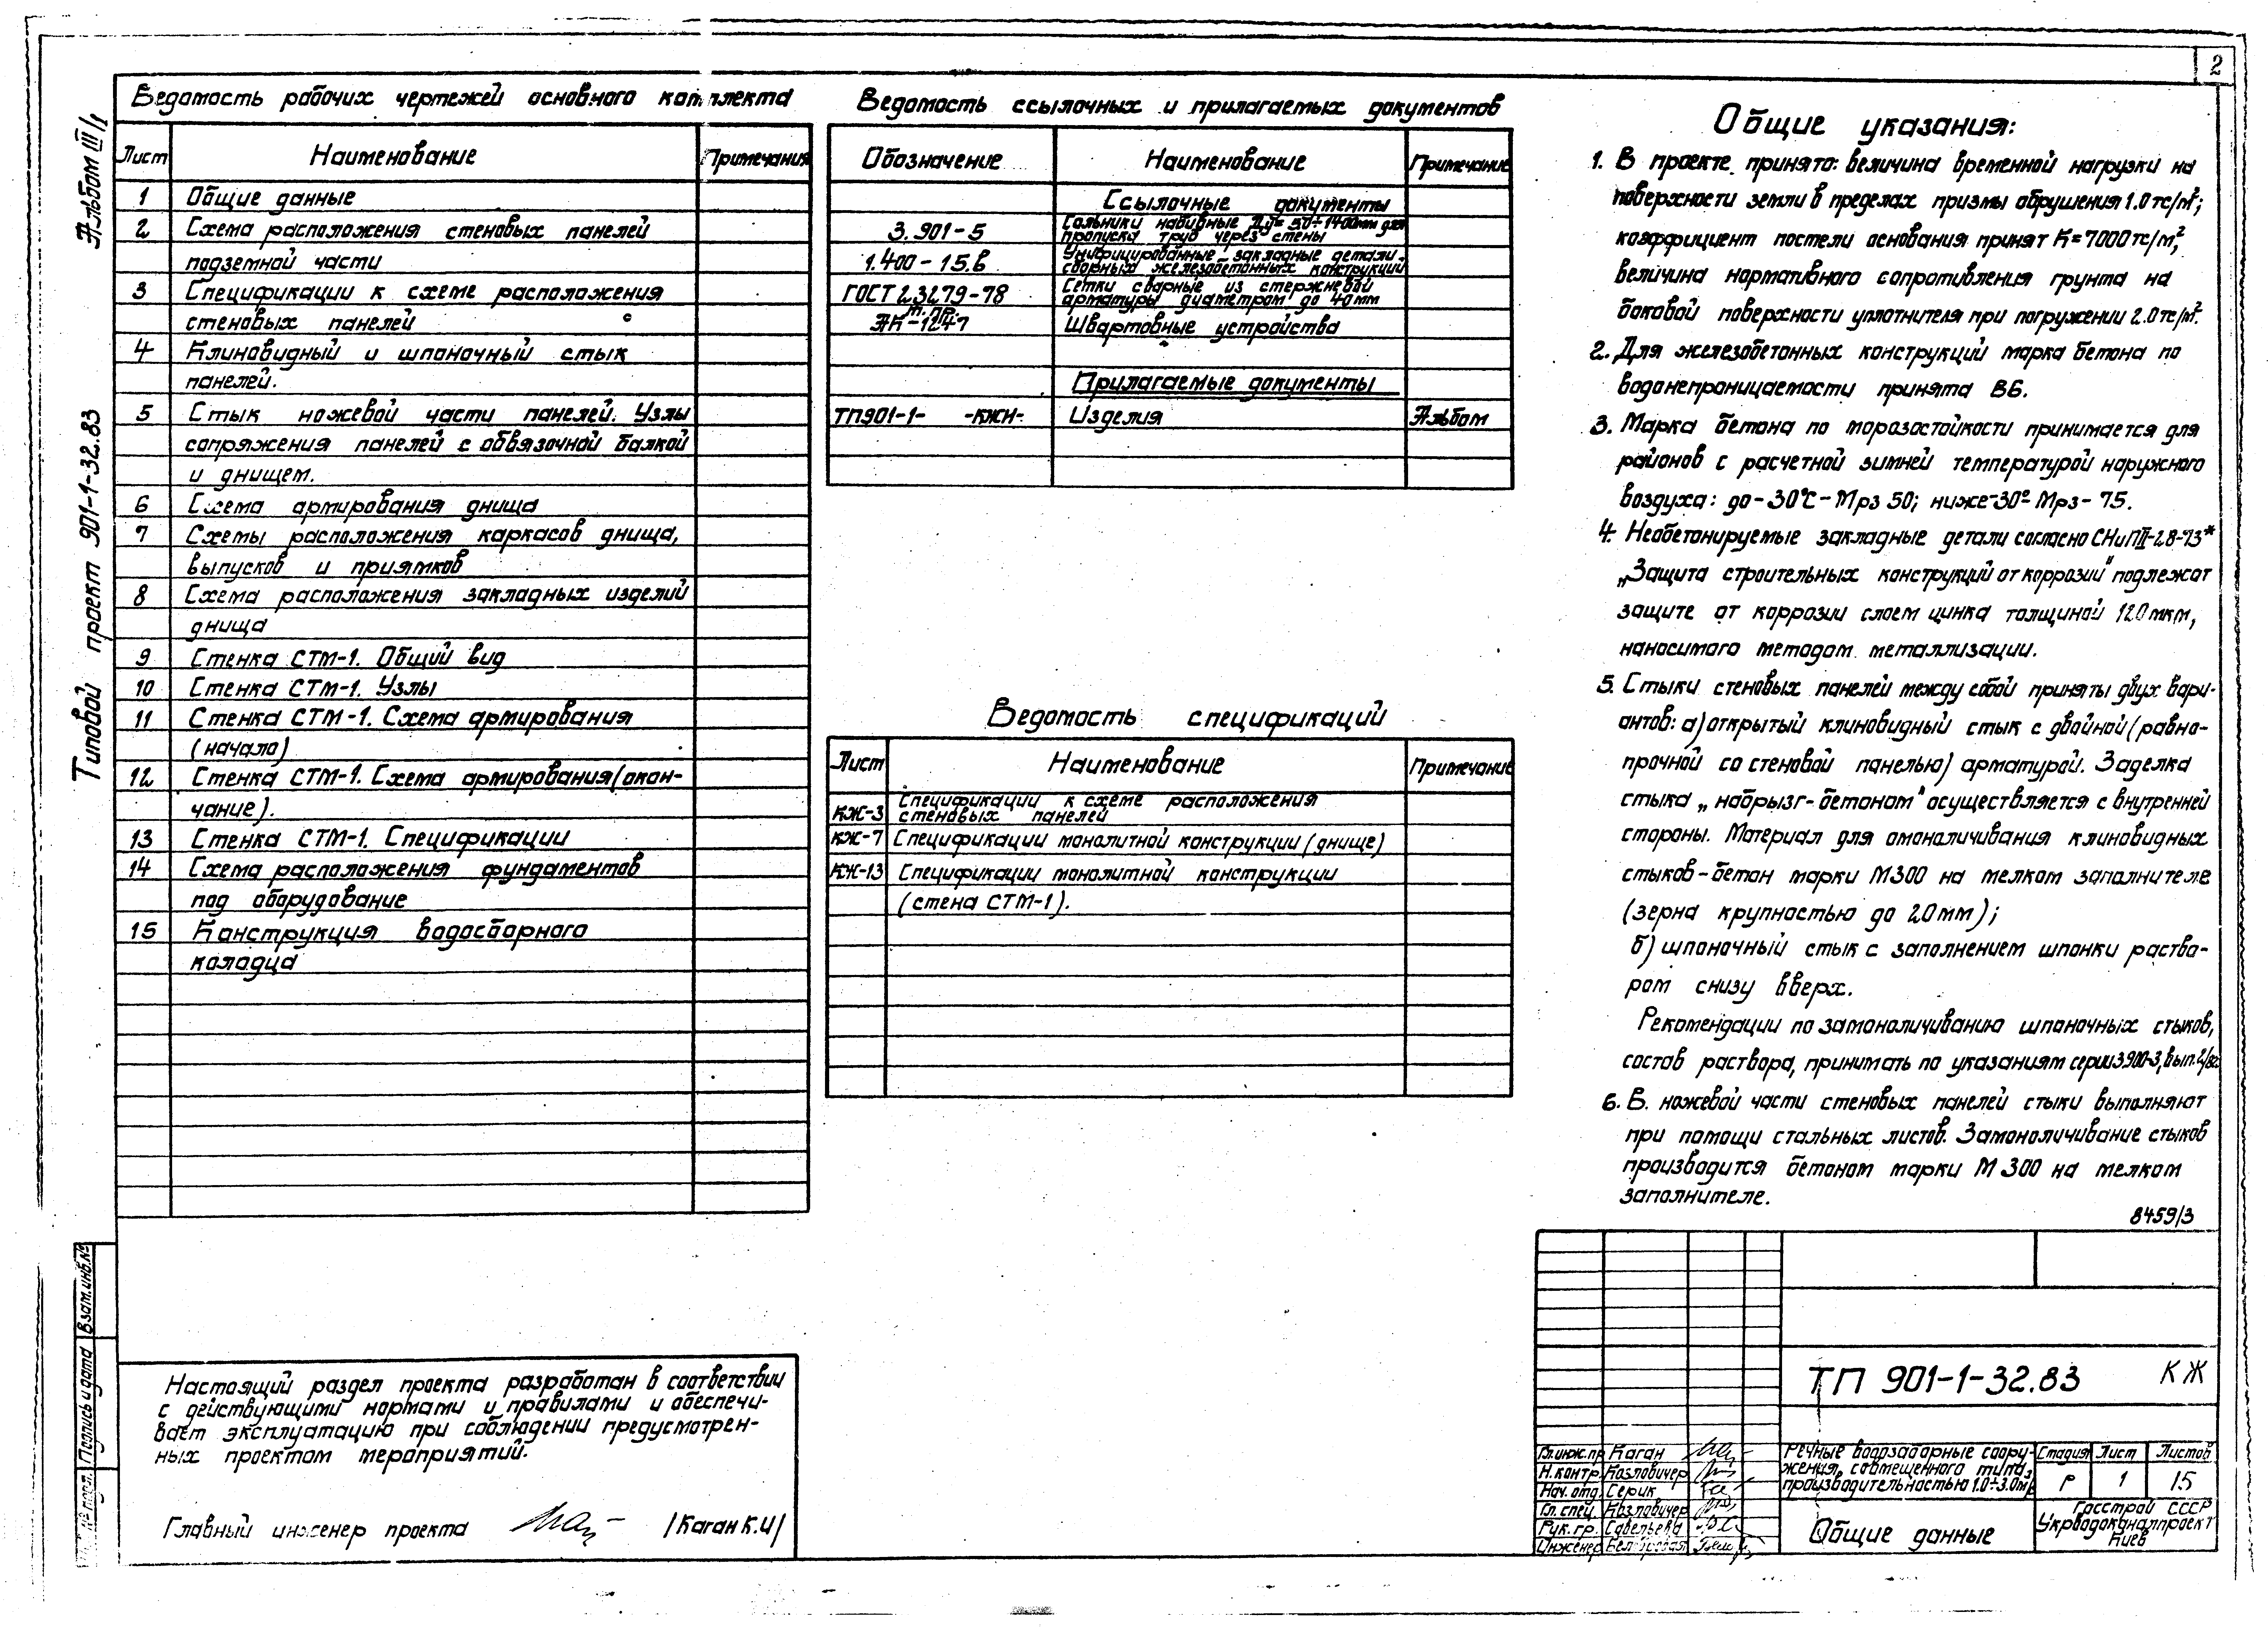 2
Альбом III/1
Типовой проект 901-1-32.83
Ведомость рабочих чертежей основного комплекта
Лист Наименование Примечания
1 Общие данные
2 Схема расположения стеновых панелей
подземной части
3 Спецификации к схеме расположения
стеновых панелей
4 Клиновидный и шпоночный стык
панелей.
5 Стык ножевой части панелей. Узлы
сопряжения панелей с обвязочной балкой
и днищем.
6 Схема армирования днища
7 Схемы расположения каркасов днища,
выпусков и приямков
8 Схема расположения закладных изделий
днища
9 Стенка СТМ-1. Общий вид
10 Стенка СТМ-1. Узлы
11 Стенка СТМ-1. Схема армирования
(начало)
12 Стенка СТМ-1. Схема армирования (окон-
чание).
13 Стенка СТМ-1. Спецификации
14 Схема расположения фундаментов
под оборудование
15 Конструкция водосборного
колодца
Ведомость ссылочных и прилагаемых документов
Обозначение Наименование Примечание
Ссылочные документы
3.901-5 Сальники набивные Ду=50÷1400мм для
пропуска труб через стены
1.400-15.В Унифицированные закладные детали
сборных железобетонных конструкций
ГОСТ 23279-78 Сетки сварные из стержневой
арматуры диаметром до 40мм
т. пр.
АК-1247 Швартовные устройства
Прилагаемые документы
ТП901-1- -КЖИ- Изделия Альбом
Ведомость спецификаций
Лист Наименование Примечание
КЖ-3 Спецификации к схеме расположения
стеновых панелей
КЖ-7 Спецификации монолитной конструкции (днище)
КЖ-13 Спецификации монолитной конструкции
(стена СТМ-1).
Общие указания:
1. В проекте принято: величина временной нагрузки на
поверхности земли в пределах призмы обрушения 1.0тс/м²;
коэффициент постели основания принят К=7000тс/м²,
величина нормативного сопротивления грунта на
боковой поверхности уплотнителя при погружении 2.0тс/м².
2. Для железобетонных конструкций марка бетона по
водонепроницаемости принята В6.
3. Марка бетона по морозостойкости принимается для
районов с расчетной зимней температурой наружного
воздуха: до -30°С - Мрз 50; ниже -30° Мрз - 75.
4. Необетонируемые закладные детали согласно СНиП III-28-73*
„Защита строительных конструкций от коррозии" подлежат
защите от коррозии слоем цинка толщиной 120мкм,
наносимого методом металлизации.
5. Стыки стеновых панелей между собой приняты двух вари-
антов: а) открытый клиновидный стык с двойной (равно-
прочной со стеновой панелью) арматурой. Заделка
стыка „набрызг-бетоном" осуществляется с внутренней
стороны. Материал для омоноличивания клиновидных
стыков - бетон марки М300 на мелком заполнителе
(зерна крупностью до 20мм);
б) шпоночный стык с заполнением шпонки раство-
ром снизу вверх.
Рекомендации по замоноличиванию шпоночных стыков,
состав раствора, принимать по указаниям серии 3.900-3, вып.2/82
6. В ножевой части стеновых панелей стыки выполняют
при помощи стальных листов. Замоноличивание стыков
производится бетоном марки М 300 на мелком
заполнителе.
8459/3
Взам.инв.№
Подпись и дата
№ подл.
Настоящий раздел проекта разработан в соответствии
с действующими нормами и правилами и обеспечи-
вает эксплуатацию при соблюдении предусмотрен-
ных проектом мероприятий.
Главный инженер проекта /Каган К.И/
ТП 901-1-32.83 КЖ
Гл.инж.пр Каган
Н.контр. Козловичер
Нач.отд. Серик
Гл.спец. Козловичер
Рук.гр. Савельева
Инженер
Речные водозаборные соору-
жения, совмещенного типа,
производительностью 1.0÷3.0м³/с
Стадия Лист Листов
Р 1 15
Общие данные
Госстрой СССР
Укрводоканалпроект
Киев